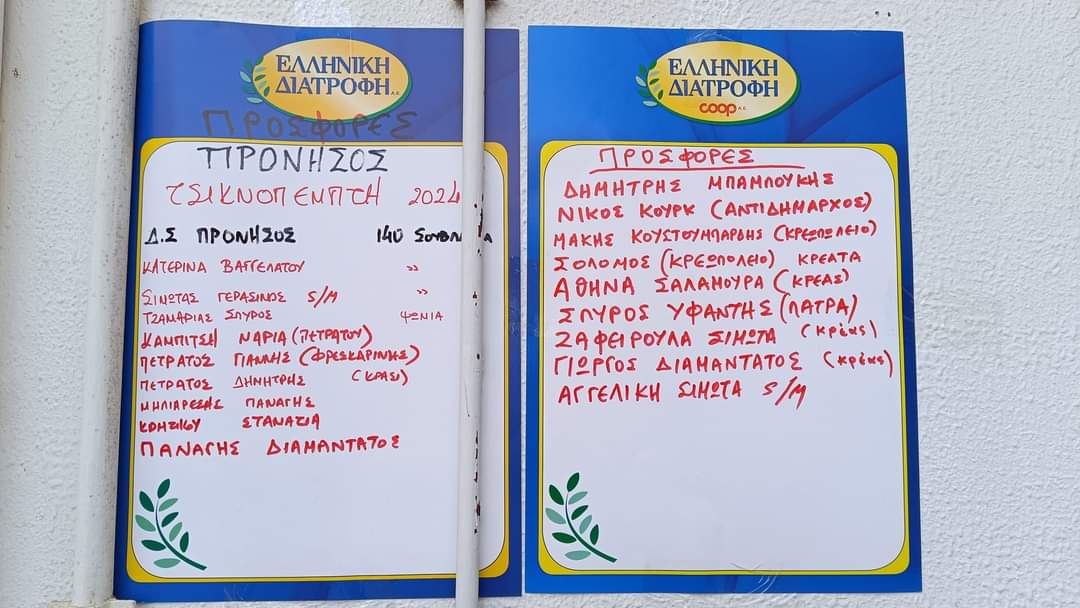 ΕΛΛΗΝΙΚΗ
ΔΙΑΤΡΟΦΗ Α.Ε.
ΠΡΟΣΦΟΡΕΣ
ΠΡΟΝΗΣΟΣ
ΤΣΙΚΝΟΠΕΜΠΤΗ 2024
Δ.Σ ΠΡΟΝΗΣΟΣ 140
ΚΑΤΕΡΙΝΑ ΒΑΓΓΕΛΑΤΟΥ »
ΣΙΜΩΤΑΣ ΓΕΡΑΣΙΜΟΣ S/M »
ΤΖΑΜΑΡΙΑΣ ΣΠΥΡΟΣ ΨΩΝΙΑ
ΚΑΜΠΙΤΣΗ ΜΑΡΙΑ (ΠΕΤΡΑΤΟΥ)
ΠΕΤΡΑΤΟΣ ΓΙΑΝΝΗΣ (ΦΡΕΣΚΑΡΙΝΗΣ)
ΠΕΤΡΑΤΟΣ ΔΗΜΗΤΡΗΣ (ΚΡΑΣΙ)
ΜΗΛΙΑΡΕΣΗΣ ΠΑΝΑΓΗΣ
ΠΑΝΑΓΗΣ ΔΙΑΜΑΝΤΑΤΟΣ
ΕΛΛΗΝΙΚΗ
ΔΙΑΤΡΟΦΗ
coop Α.Ε.
ΠΡΟΣΦΟΡΕΣ
ΔΗΜΗΤΡΗΣ ΜΠΑΜΠΟΥΚΗΣ
ΝΙΚΟΣ ΚΟΥΡΚ (ΑΝΤΙΔΗΜΑΡΧΟΣ)
ΜΑΚΗΣ ΚΟΥΣΤΟΥΜΠΑΡΔΗΣ (ΚΡΕΩΠΟΛΕΙΟ)
ΣΟΛΟΜΟΣ (ΚΡΕΩΠΟΛΕΙΟ) ΚΡΕΑΤΑ
ΑΘΗΝΑ ΣΑΛΑΜΟΥΡΑ (ΚΡΕΑΣ)
ΣΠΥΡΟΣ ΥΦΑΝΤΗΣ (ΠΑΤΡΑ)
ΖΑΦΕΙΡΟΥΛΑ ΣΙΜΩΤΑ (κρέας)
ΓΙΩΡΓΟΣ ΔΙΑΜΑΝΤΑΤΟΣ (κρέας)
ΑΓΓΕΛΙΚΗ ΣΙΜΩΤΑ S/M